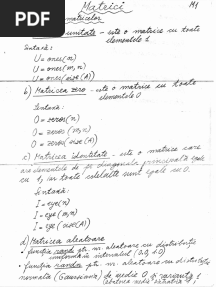 Matrici
M1
PDF
matricelor
unitate - este o matrice cu toate
elementele 1
Sintaxă:
U = ones(n)
U = ones(m, n)
U = ones(size(A))
b) Matricea zero - este o matrice cu toate
elementele 0
Sintaxă:
O = zeros(n)
O = zeros(m, n)
O = zeros(size(A))
c) Matricea identitate - este o matrice care
are elementele de pe diagonala principală egale
cu 1, iar toate celelalte sunt egale cu 0.
Sintaxă:
I = eye(n)
I = eye(m, n)
I = eye(size(A))
d) Matricea aleatoare
• funcția rand ptr. m. aleatoare cu distribuție
uniformă în intervalul
• funcția randn ptr. m. aleatoare cu distribuție
normală (Gaussiana) de medie 0 și varianta 1